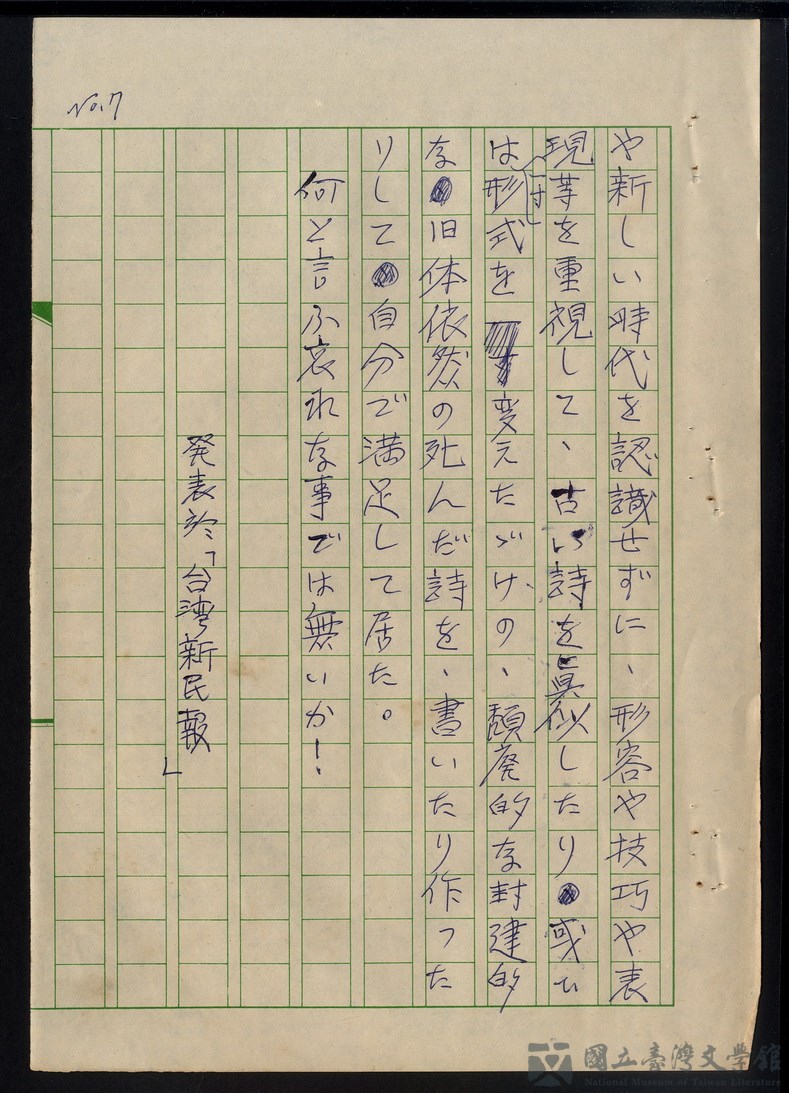 No.7
や新しい時代を認識せずに、形容や技巧や表
現等を重視して、古い詩を真似したり或ひ
は一寸形式を変えたゞけの、頽廃的な封建的
な旧体依然の死んだ詩を、書いたり作った
りして自分で満足して居た。
何と言ふ哀れな事では無いか！
発表於「台湾新民報」
國立臺灣文學館
National Museum of Taiwan Literature